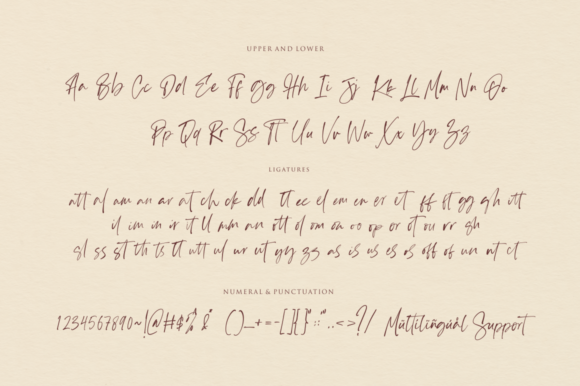 UPPER AND LOWER
Aa Bb Cc Dd Ee Ff Gg Hh Ii Jj Kk Ll Mm Nn Oo
Pp Qq Rr Ss Tt Uu Vv Ww Xx Yy Zz
LIGATURES
att al am an ar at ch ck dd tt ec el em en er et ff ft gg gh itt
il im in ir it ll mm an ott ol om on oo op or ot ou rr sh
sl ss st th ts tt utt ul ur ut yy zz as is us es os off of un nt ct
NUMERAL & PUNCTUATION
1234567890~!@#$%&()_+=-[]{}"::'"..<>?/ Multilingual Support